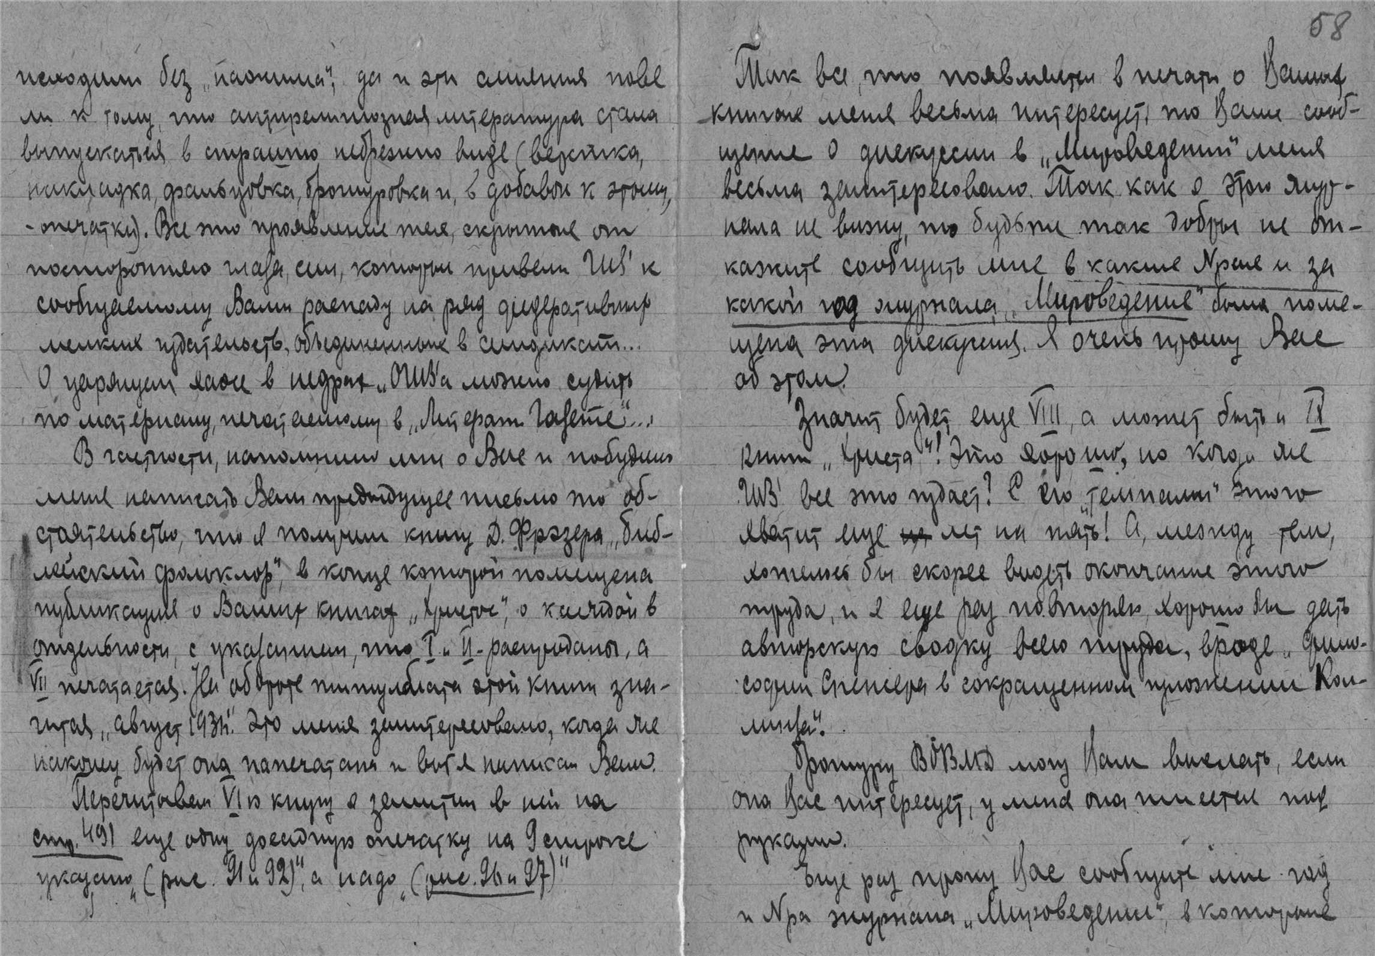 исходили без „нажима“, да и эти слияния пове
ли к тому, что антирелигиозная литература стала
выпускаться в страшно небрежно виде (верстка,
накладка, фальцовка, брошуровка и, в добавок к этому,
- опечатки). Все это проявление тех, скрытых от
постороннего глаза, сил, которые привели ГИЗ' к
сообщаемому Вами распаду на ряд федеративных
мелких издательств, объединенных в синдикат...
О царящем хаосе в недрах „ОГИЗ'а можно судить
по материалу, печатаемому в „Литерат. Газете“...
В частности, напомнило мне о Вас и побудило
меня написать Вам предыдущее письмо то об-
стоятельство, что я получил книгу Д. Фрэзера „Биб-
лейский фольклор“, в конце которой помещена
публикация о Ваших книгах „Христос“, о каждой в
отдельности, с указанием, что I и II - распроданы, а
VII печатается. На обороте титулблата этой книги зна-
чится „август 1931“. Это меня заинтересовало, когда же
наконец будет она напечатана и вот я написал Вам.
Перечитывая VI ю книгу я заметил в ней на
стр. 491 еще одну досадную опечатку на 9 строке
указано „(рис. 91 и 92)“, а надо „(рис. 96 и 97)“
58
Так все, что появляется в печати о Ваших
книгах меня весьма интересует, то Ваше сооб-
щение о дискуссии в „Мироведении“ меня
весьма заинтересовало. Так как я этого жур-
нала не вижу, то будьте так добры не от-
кажите сообщить мне в каких №рах и за
какой год журнала „Мироведение“ была поме-
щена эта дискуссия. Я очень прошу Вас
об этом.
Значит будет еще VIII, а может быть и IX
книги „Христа“! Это хорошо, но когда же
ГИЗ' все это издаст? С его „темпами“ этого
хватит еще лет на пять! А, между тем,
хотелось бы скорее видеть окончание этого
труда, и я еще раз повторяю, хорошо бы дать
авторскую сводку всего труда, вроде „Фило-
софии Спенсера в сокращенном изложении Кол-
линза“.
Брошуру ВОВМД могу Вам выслать, если
она Вас интересует, у меня она имеется под
руками.
Еще раз прошу Вас сообщите мне год
и №ра журнала „Мироведение“, в которых